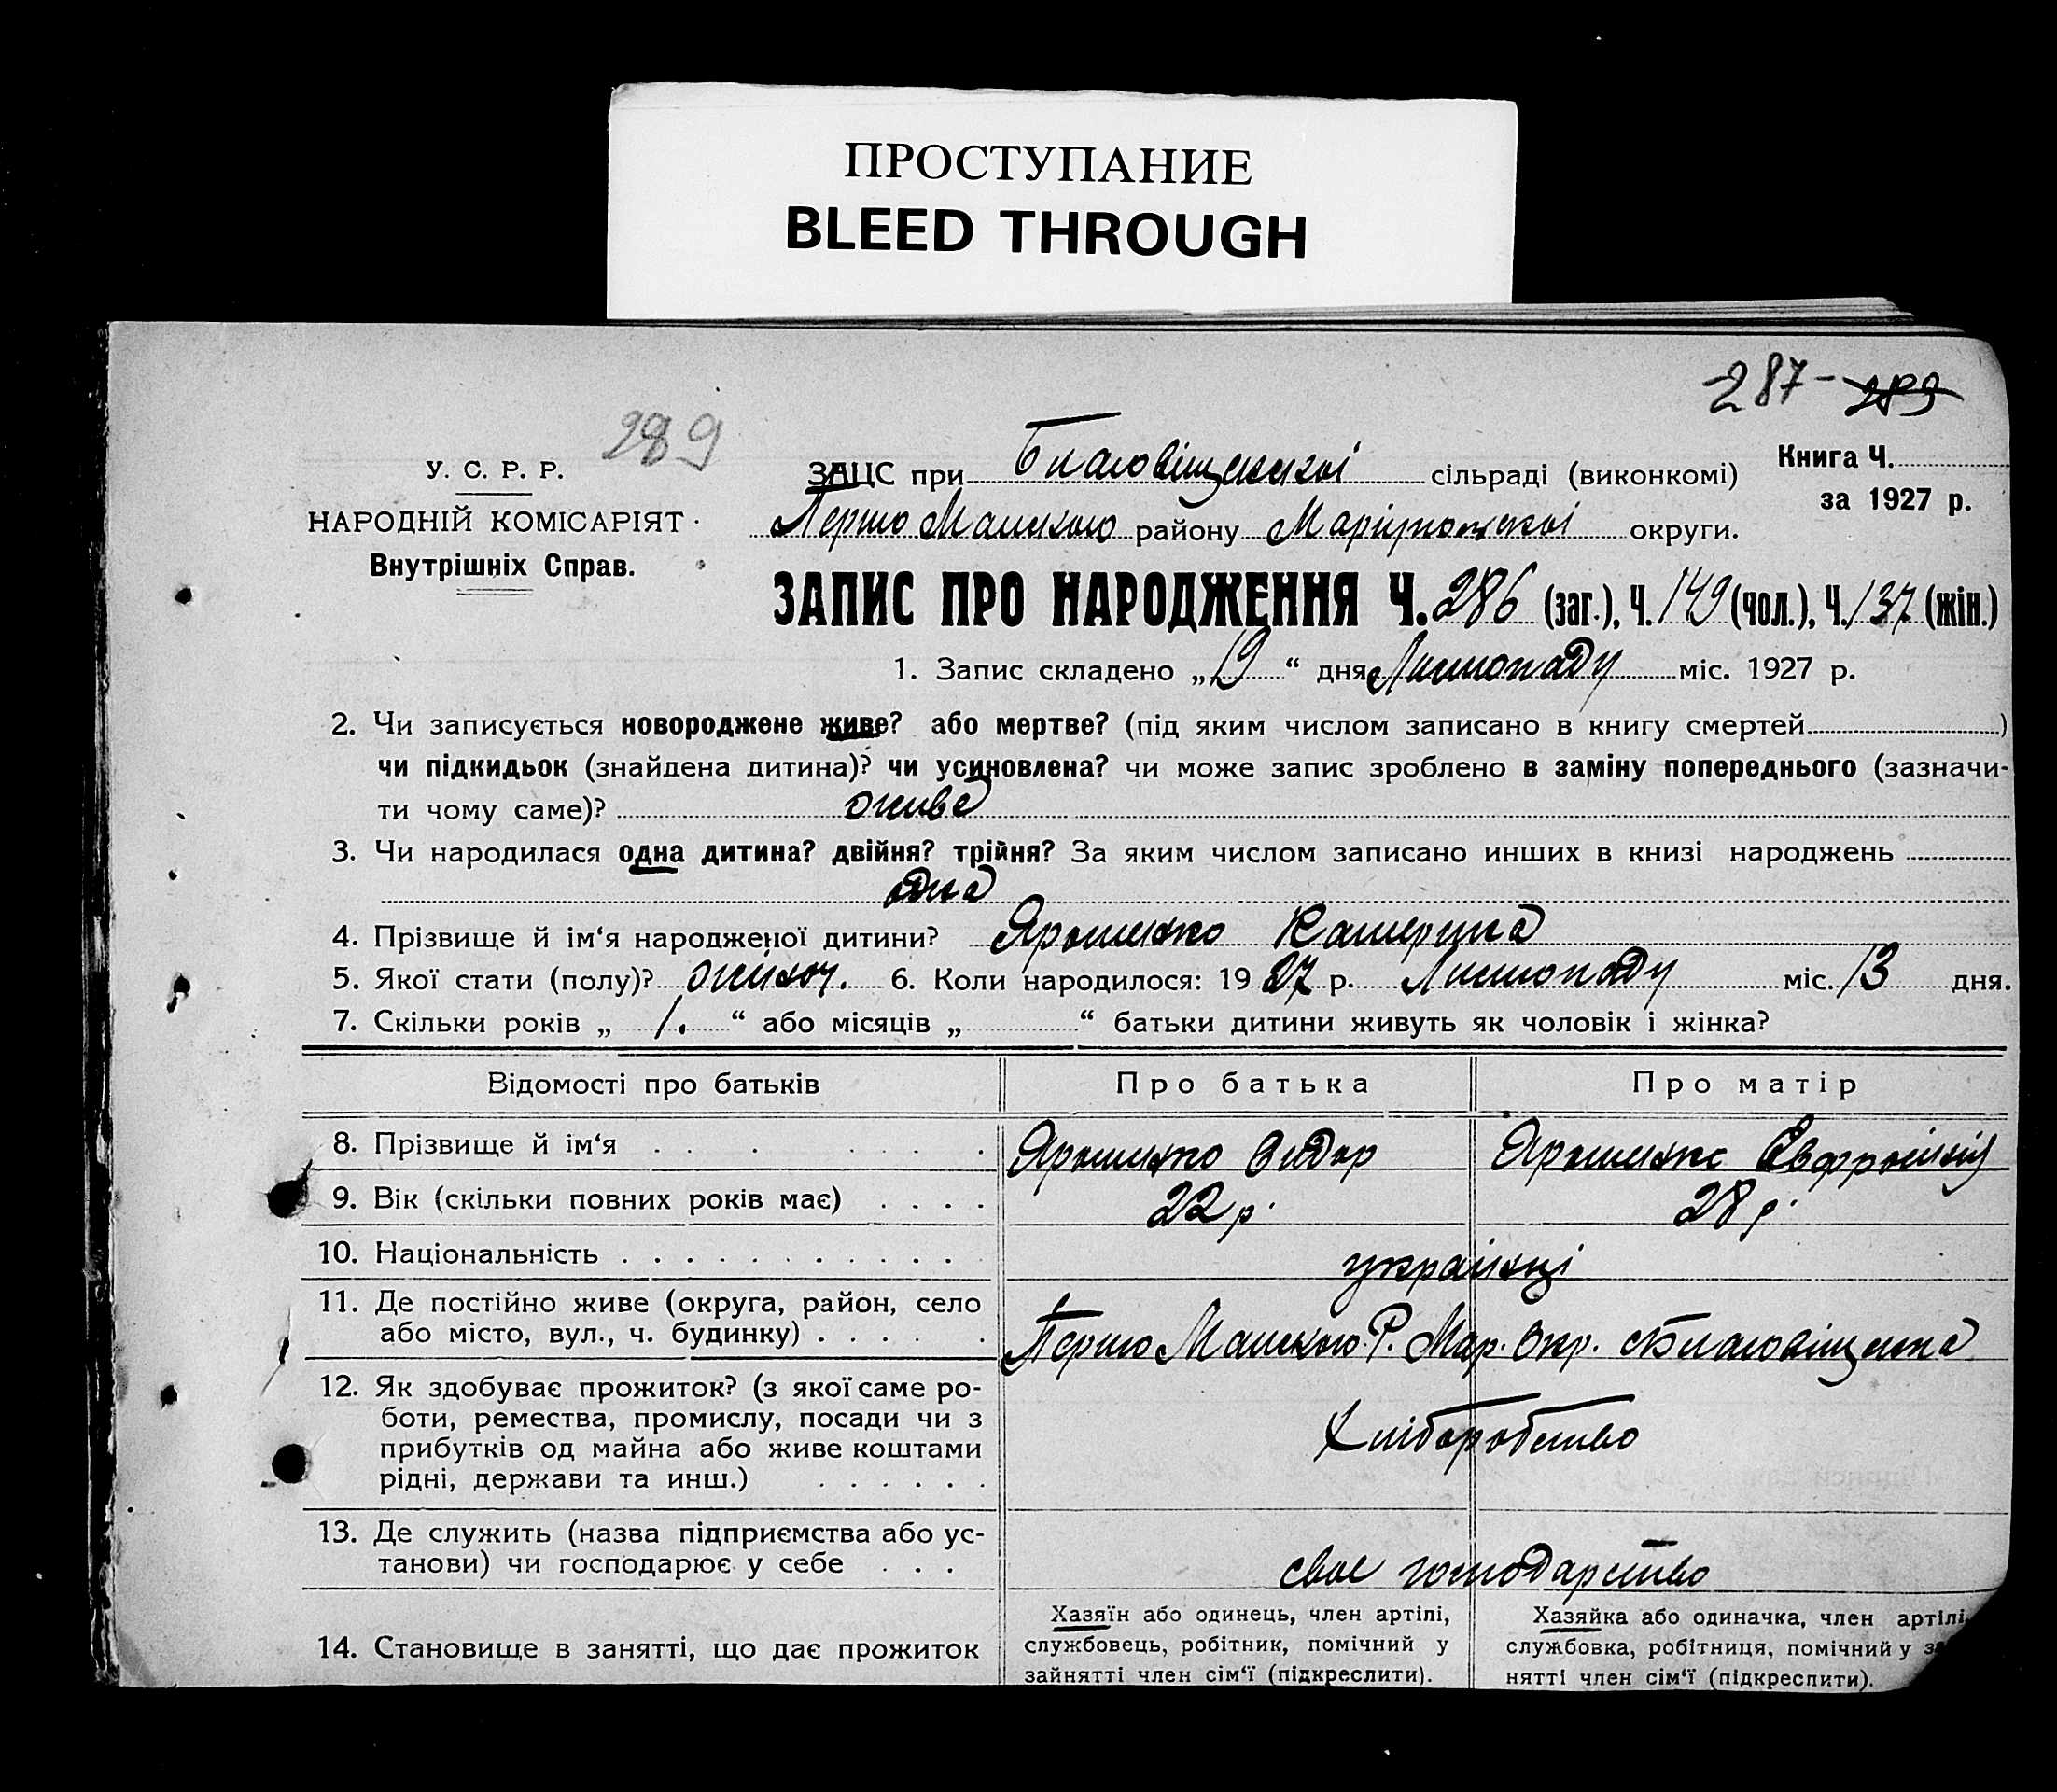 ПРОСТУПАНИЕ
BLEED THROUGH
287 - 289
289
У. С. Р. Р.
НАРОДНІЙ КОМІСАРІЯТ
Внутрішніх Справ.
Книга Ч.
за 1927 р.
ЗАЦС при Благовіщенскої сільраді (виконкомі)
Першо Майского району Маріупольскої округи.
ЗАПИС ПРО НАРОДЖЕННЯ Ч. 286 (заг.), Ч. 149 (чол.), Ч. 137 (жін.)
1. Запис складено „19“ дня Листопаду міс. 1927 р.
2. Чи записується новороджене живе? або мертве? (під яким числом записано в книгу смертей )
чи підкидьок (знайдена дитина)? чи усиновлена? чи може запис зроблено в заміну попереднього (зазначи-
ти чому саме)? живе
3. Чи народилася одна дитина? двійня? трійня? За яким числом записано инших в книзі народжень
одна
4. Прізвище й ім‘я народженої дитини? Ярошенко Катерина
5. Якої стати (полу)? жіноч. 6. Коли народилося: 1927 р. Листопаду міс. 13 дня.
7. Скільки років „ 1. “ або місяців „ “ батьки дитини живуть як чоловік і жінка?
Відомості про батьків Про батька Про матір
8. Прізвище й ім‘я Ярошенко Сидор Ярошенко Євфросинія
9. Вік (скільки повних років має) 22 р. 28 р.
10. Національність українці
11. Де постійно живе (округа, район, село
або місто, вул., ч. будинку) Першо Майского Р. Мар. Окр. с Благовіщенка
12. Як здобуває прожиток? (з якої саме ро-
боти, ремества, промислу, посади чи з
прибутків од майна або живе коштами
рідні, держави та инш.) Хліборобство
13. Де служить (назва підприємства або ус-
танови) чи господарює у себе своє господарство
14. Становище в занятті, що дає прожиток
Хазяїн або одинець, член артілі,
службовець, робітник, помічний у
зайнятті член сім‘ї (підкреслити).
Хазяйка або одиначка, член артілі,
службовка, робітниця, помічний у за
нятті член сім‘ї (підкреслити).